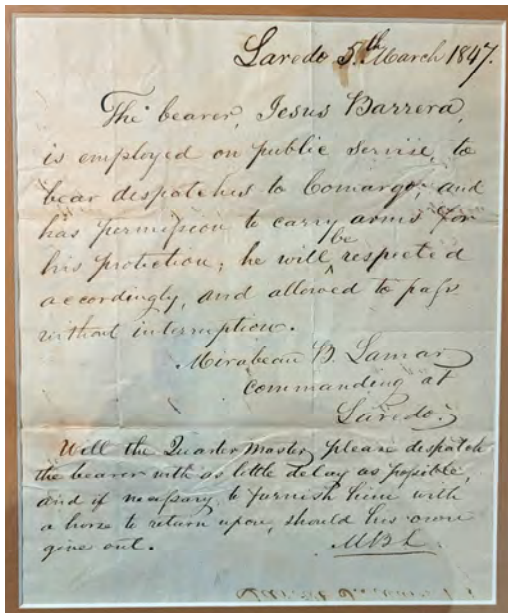 Laredo 5th March 1847.
The bearer, Jesus Barrera,
is employed on public service, to
bear despatches to Comargo, and
has permission to carry arms for
his protection; he will be respected
accordingly, and allowed to pass
without interruption.
Mirabeau B. Lamar
commanding at
Laredo.
Will the Quarter Master please despatch
the bearer with as little delay as possible,
and if necessary to furnish him with
a horse to return upon, should his own
give out.
MBL